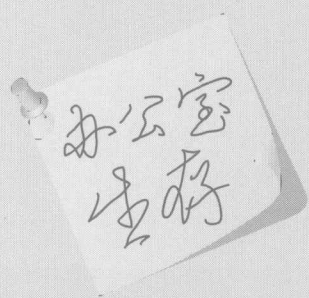 办公室
生存